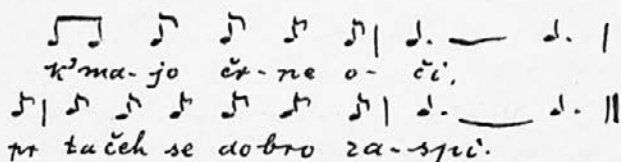 k' ma-jo čr-ne o-či,
pr tačeh se dobro za-spi.